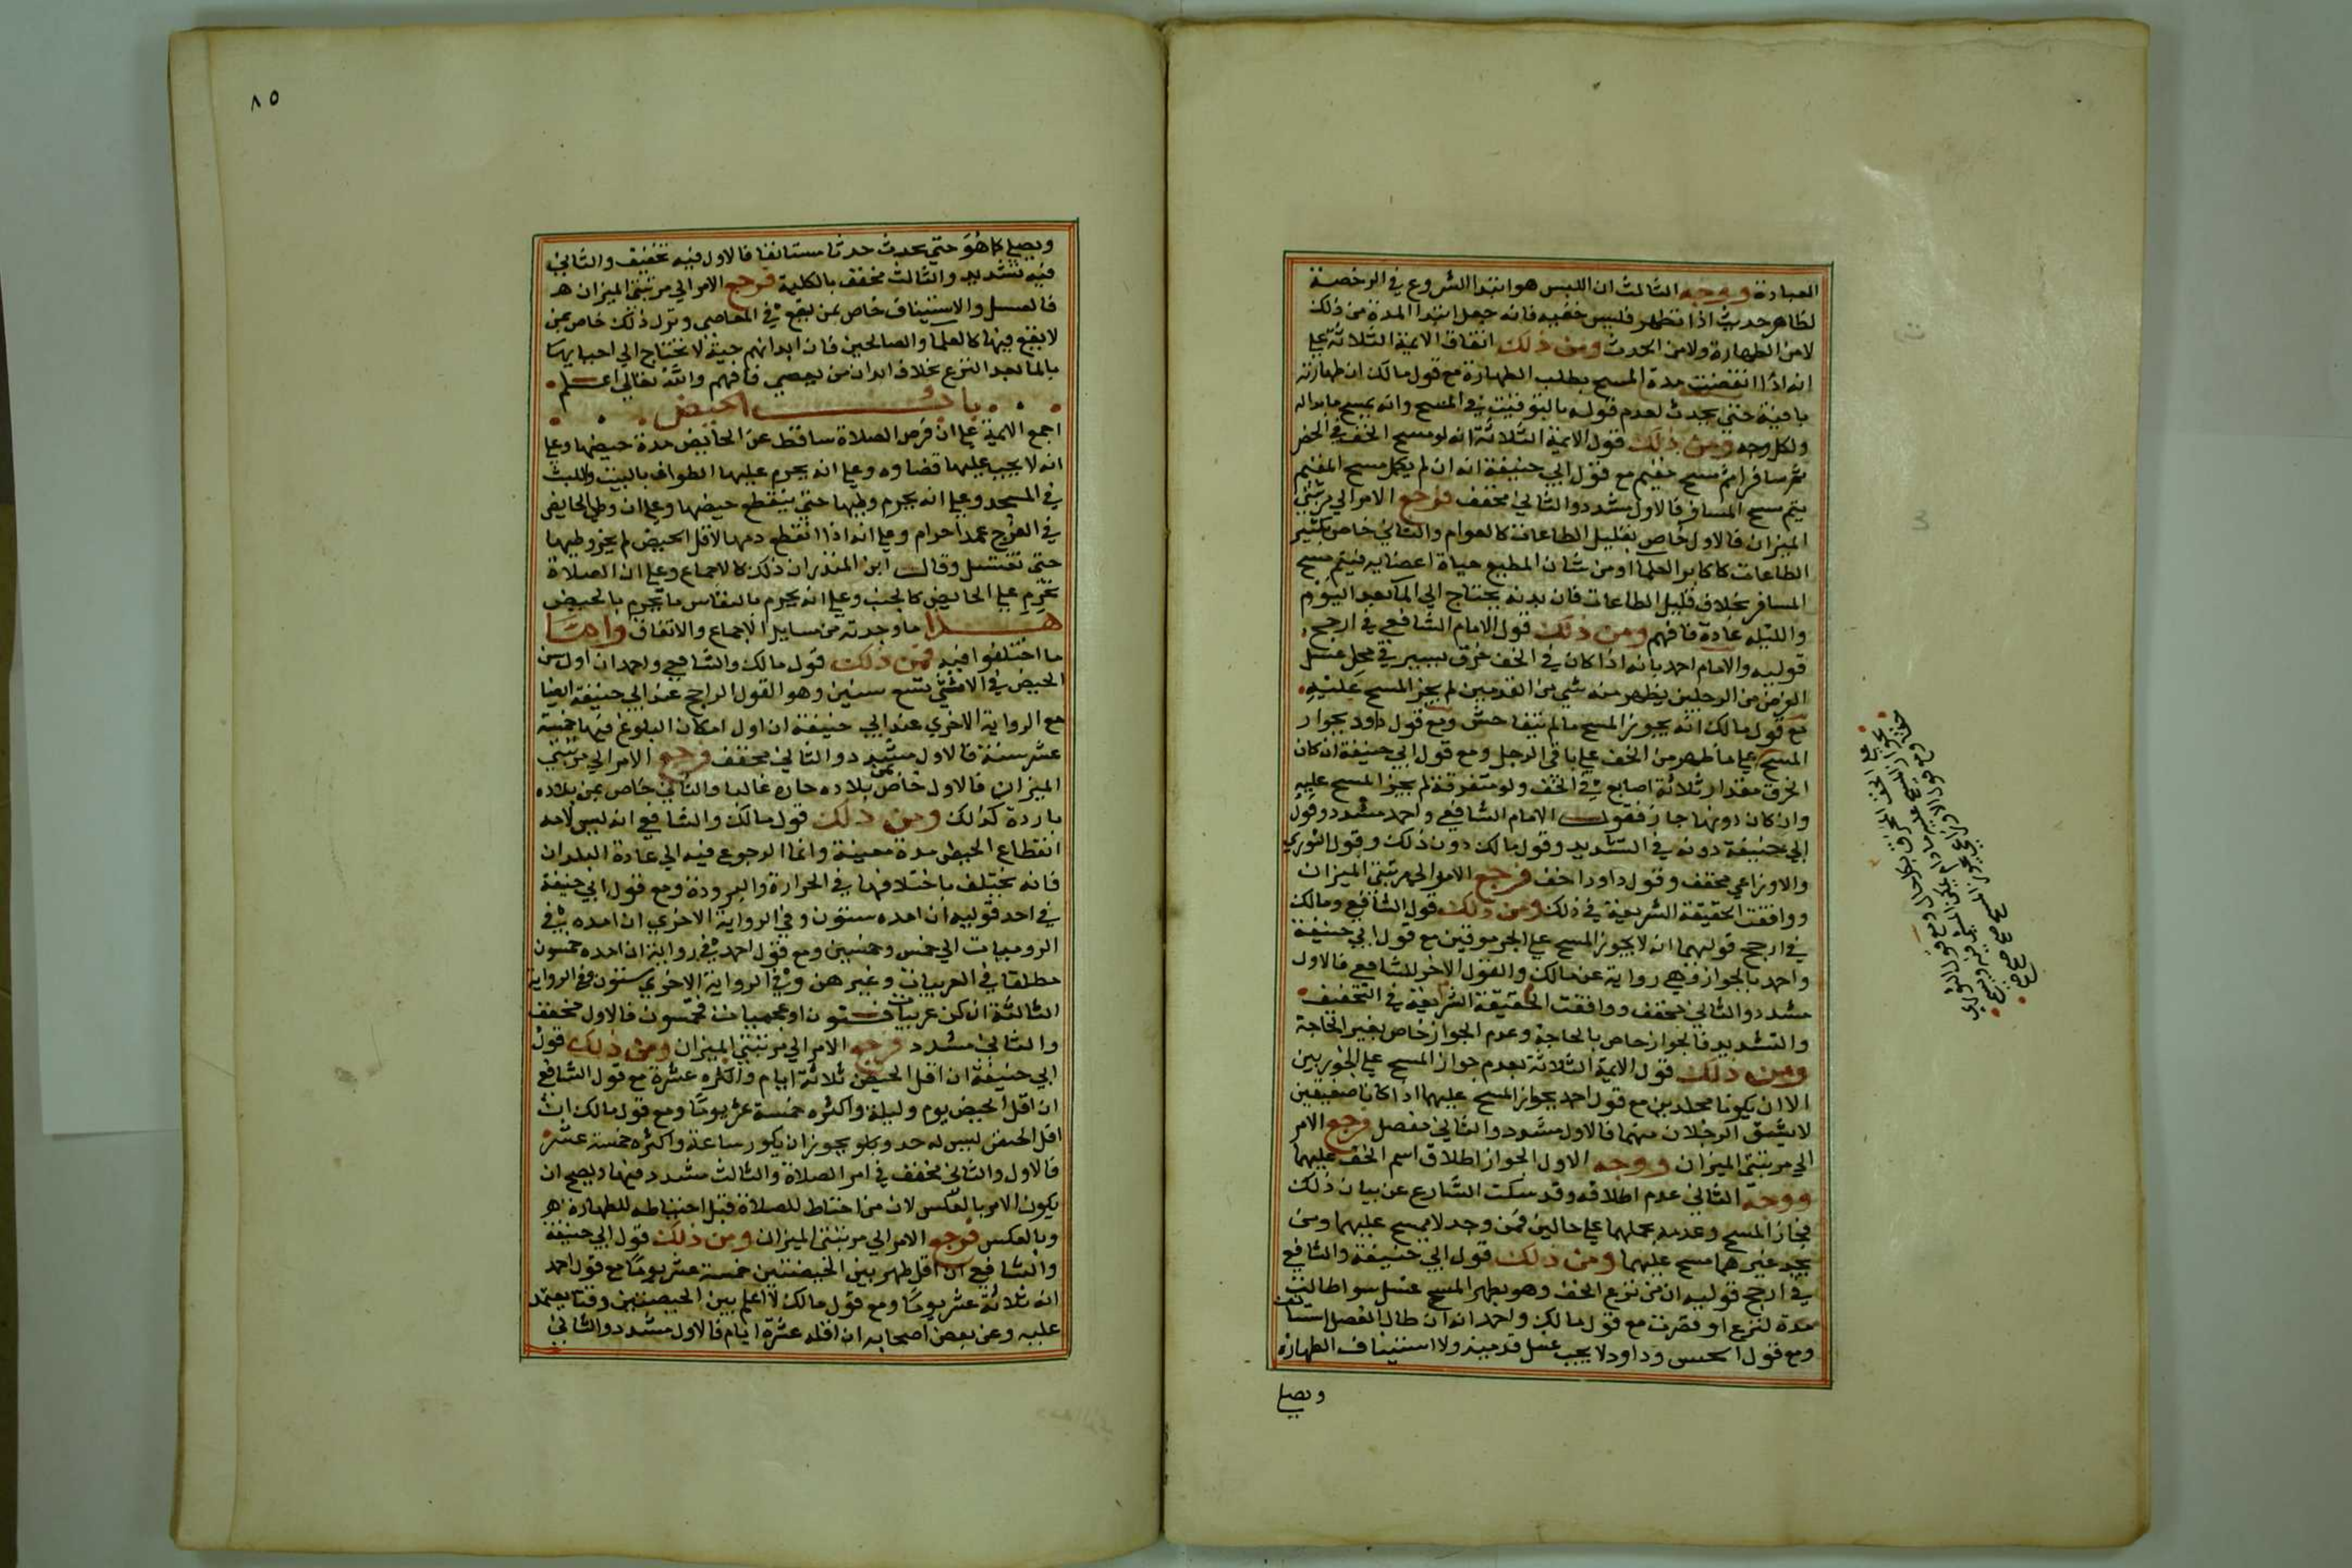 العبادة ووجه الثالث ان اللبس هو ابتدا الشروع في الرخصة
لظاهر حديث اذا تطهر فلبس خفيه فانه جعل ابتدا المدة من ذلك
لا من الطهارة ولا من الحدث ومن ذلك اتفاق الايمة الثلاثة علي
انه اذا انقضت مدة المسح بطلت الطهارة مع قول مالك ان طهارته
باقية حتي يحدث لعدم قوله بالتوقيت في المسح وانه يمسح ما بداله
ولكل وجه ومن ذلك قول الايمة الثلاثة انه لو مسح الخف في الحضر
ثم سافر اتم مسح مقيم مع قول ابي حنيفة انه ان لم يكمل مسح المقيم
يتم مسح المسافر فالاول مشدد والثاني مخفف فرجع الامر الي مرتبتي
الميزان فالاول خاص بقليل الطاعات كالعوام والثاني خاص بكثير
الطاعات كاكابر العلما اذ من شان المطيع حياة اعضايه فيتم مسح
المسافر بخلاف قليل الطاعات فان بدنه يحتاج الي الما بعد اليوم
والليلة عادة فافهم ومن ذلك قول الامام الشافعي في ارجح
قوليه والامام احمد بانه اذا كان في الخف خرق يسير في محل غسل
الفرض من الرجلين يظهر منه شي من القدمين لم يجز المسح عليه
مع قول مالك انه يجوز المسح ما لم يتفاحش ومع قول داود بجواز
المسح علي ما ظهر من الخف علي باقي الرجل ومع قول ابي حنيفة ان كان
الخرق مقدار ثلاثة اصابع في الخف ولو متفرقة لم يجز المسح عليه
وان كان دونها جاز فقول الامام الشافعي واحمد مشدد وقول
ابي حنيفة دونه في التشديد وقول مالك دون ذلك وقول الثوري
والاوزاعي مخفف وقول داود اخف فرجع الامر الي مرتبتي الميزان
ووافقت الحقيقة الشريعة في ذلك ومن ذلك قول الشافعي ومالك
في ارجح قوليهما انه لا يجوز المسح علي الجرموقين مع قول ابي حنيفة
واحمد بالجواز وهي رواية عن مالك والقول الاخر للشافعي فالاول
مشدد والثاني مخفف ووافقت الحقيقة الشريعة في التخفيف
والتشديد فالجواز خاص بالحاجة وعدم الجواز خاص بغير الحاجة
ومن ذلك قول الايمة الثلاثة بعدم جواز المسح علي الجوربين
الا ان يكونا مجلدين مع قول احمد بجواز المسح عليهما اذا كانا صفيقين
لا يشق الرجلان منهما فالاول مشدد والثاني مفصل فرجع الامر
الي مرتبتي الميزان ووجه الاول الجواز اطلاق اسم الخف عليهما
ووجه الثاني عدم اطلاقه وقد سكت الشارع عن بيان ذلك
فجاز المسح وعدمه بحملهما علي حالين فمن وجد لا يمسح عليهما ومن
يجد غيرهما مسح عليهما ومن ذلك قول ابي حنيفة والشافعي
في ارجح قوليه ان من نزع الخف وهو بطهر المسح غسل سوا طالت
مدة النزع او قصرت مع قول مالك واحمد انه ان طال الفصل استانف
ومع قول الحسن وداود لا يجب غسل قدميه ولا استيناف الطهارة
ويصلي
٨٥
ويصلي كما هو حتي يحدث حدثا مستانفا فالاول فيه تخفيف والثاني
فيه تشديد والثالث مخفف بالكلية فرجع الامر الي مرتبتي الميزان هـ
فالغسل والاستيناف خاص بمن يقع في المعاصي وترك ذلك خاص بمن
لا يقع فيها كالعلما والصالحين فان ابدانهم حية لا تحتاج الي احيايها
بالما بعد النزع بخلاف ابدان من يعصي فافهم والله تعالي اعلم
باب الحيض
اجمع الايمة علي ان فرض الصلاة ساقط عن الحايض مدة حيضها وعلي
انه لا يجب عليها قضاوه وعلي انه يحرم عليها الطواف بالبيت واللبث
في المسجد وعلي انه يحرم وطيها حتي ينقطع حيضها وعلي ان وطي الحايض
في الفرج عمدا حرام وعلي انه اذا انقطع دمها لاقل الحيض لم يجز وطيها
حتي تغتسل وقال ابن المنذر ان ذلك كالاجماع وعلي ان الصلاة
تحرم علي الحايض كالجنب وعلي انه يحرم بالنفاس ما يحرم بالحيض
هذا ما وجدته من مسايل الاجماع والاتفاق واما
ما اختلفوا فيه فمن ذلك قول مالك والشافعي واحمد ان اول سن
الحيض في الانثي تسع سنين وهو القول الراجح عند ابي حنيفة ايضا
مع الرواية الاخري عند ابي حنيفة ان اول امكان البلوغ فيها خمسة
عشر سنة فالاول مشدد والثاني مخفف فرجع الامر الي مرتبتي
الميزان فالاول خاص بمن بلاده حارة غالبا والثاني خاص بمن بلاده
باردة كذلك ومن ذلك قول مالك والشافعي انه ليس لامد
انقطاع الحيض مدة معينة وانما الرجوع فيه الي عادة البلدان
فانه يختلف باختلافها في الحرارة والبرودة ومع قول ابي حنيفة
في احد قوليه ان امده ستون وفي الرواية الاخري ان امده في
الروميات الي خمس وخمسين ومع قول احمد في رواية ان امده خمسون
مطلقا في العربيات وغيرهن وفي الرواية الاخري ستون وفي الرواية
الثالثة ان كن عربيات فستون او عجميات فخمسون فالاول مخفف
والثاني مشدد فرجع الامر الي مرتبتي الميزان ومن ذلك قول
ابي حنيفة ان اقل الحيض ثلاثة ايام واكثره عشرة مع قول الشافعي
ان اقل الحيض يوم وليلة واكثره خمسة عشر يوما ومع قول مالك ان
اقل الحيض ليس له حد ويجوز ان يكون ساعة واكثره خمسة عشر
فالاول والثاني مخفف في امر الصلاة والثالث مشدد فيها ويصح ان
يكون الامر بالعكس لان من احتاط للصلاة قبل احتياطه للطهارة هو
وبالعكس فرجع الامر الي مرتبتي الميزان ومن ذلك قول ابي حنيفة
والشافعي ان اقل طهر بين الحيضتين خمسة عشر يوما مع قول احمد
انه ثلاثة عشر يوما ومع قول مالك لا اعلم بين الحيضتين وقتا يعتمد
عليه وعن بعض اصحابه ان اقله عشرة ايام فالاول مشدد والثاني